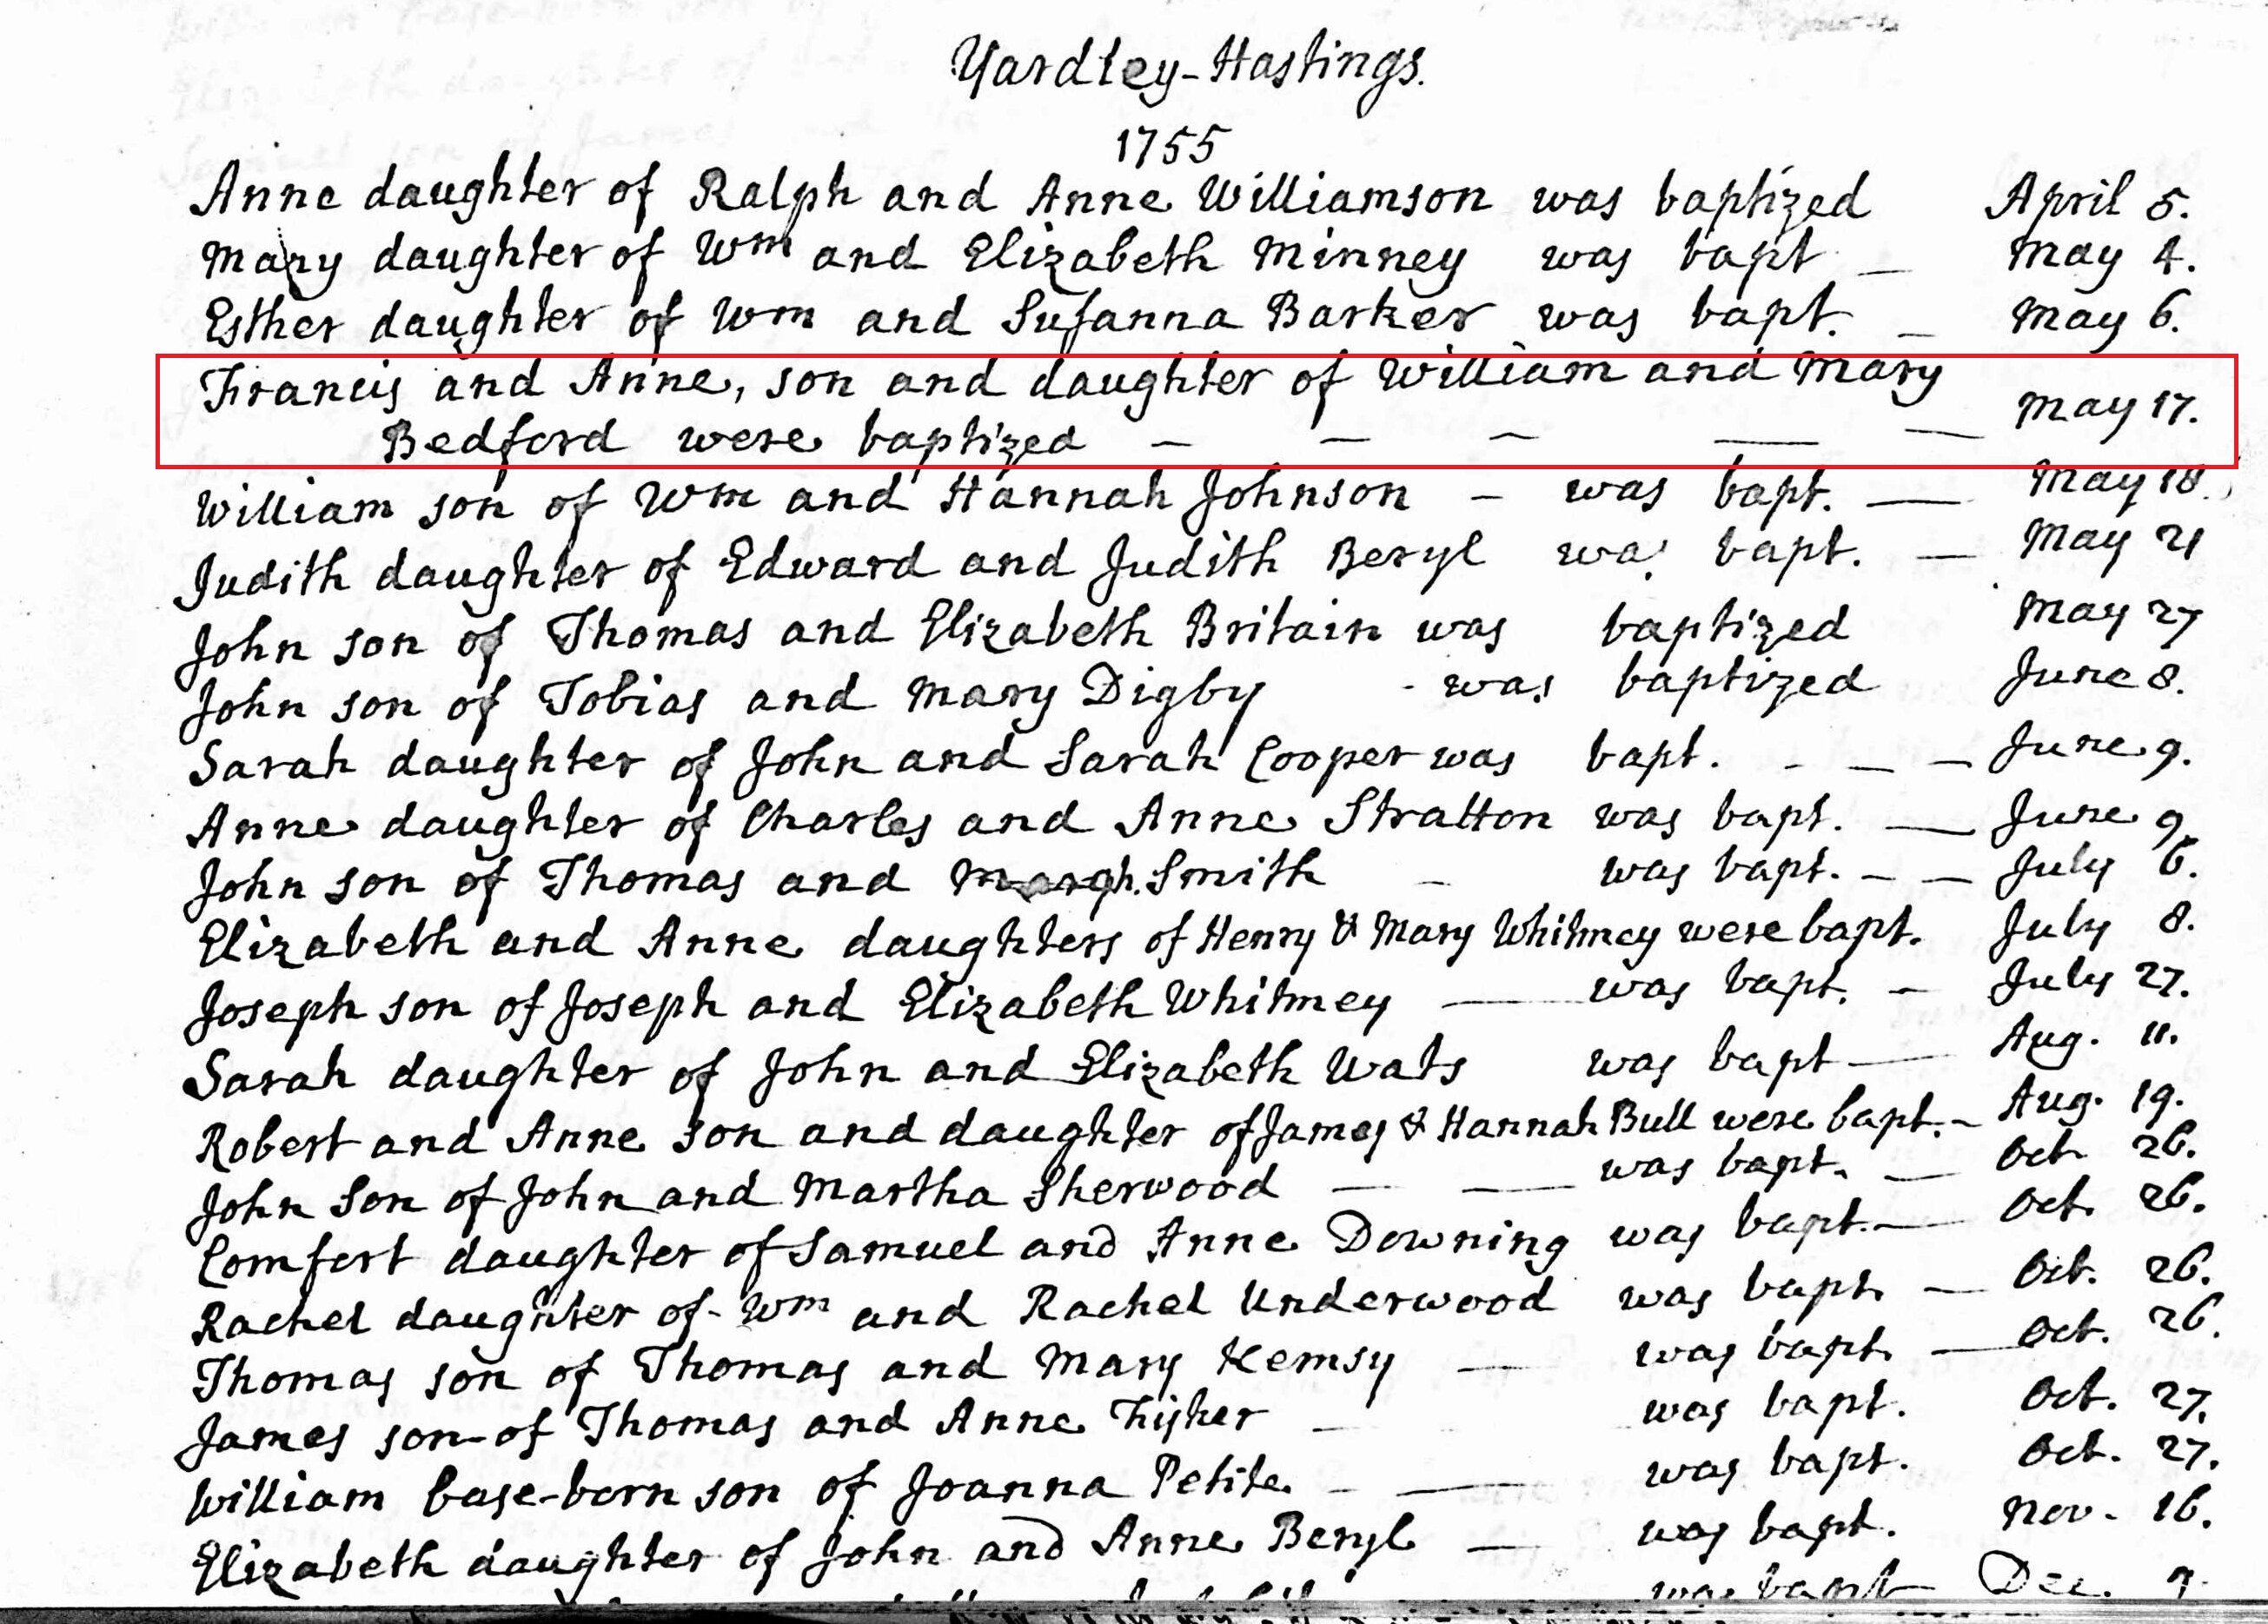 Yardley-Hastings.
1755
Anne daughter of Ralph and Anne Williamson was baptized April 5.
Mary daughter of Wm and Elizabeth Minney was bapt — May 4.
Esther daughter of Wm and Susanna Barker was bapt. — May 6.
Francis and Anne, son and daughter of William and Mary
Bedford were baptized — — — — — May 17.
William son of Wm and Hannah Johnson — was bapt. — May 18.
Judith daughter of Edward and Judith Beryl was bapt. — May 21
John son of Thomas and Elizabeth Britain was baptized May 27
John son of Tobias and Mary Digby - was baptized June 8.
Sarah daughter of John and Sarah Cooper was bapt. - — — June 9.
Anne daughter of Charles and Anne Stratton was bapt. — June 9.
John son of Thomas and Smith — was bapt. — — July 6.
Elizabeth and Anne daughters of Henry & Mary Whitmey were bapt. July 8.
Joseph son of Joseph and Elizabeth Whitmey — was bapt. — July 27.
Sarah daughter of John and Elizabeth Wats was bapt — Aug. 11.
Robert and Anne son and daughter of James & Hannah Bull were bapt. — Aug. 19.
John Son of John and Martha Sherwood — — was bapt. — Oct. 26.
Comfort daughter of Samuel and Anne Downing was bapt. — Oct. 26.
Rachel daughter of Wm and Rachel Underwood was bapt. — Oct. 26.
Thomas son of Thomas and Mary Kemsy — was bapt. — Oct. 26.
James son of Thomas and Anne Fisher — was bapt. Oct. 27.
William base-born son of Joanna Petite. - — was bapt. Oct. 27.
Elizabeth daughter of John and Anne Beryl — was bapt. Nov. 16.
was bapt — Dec.